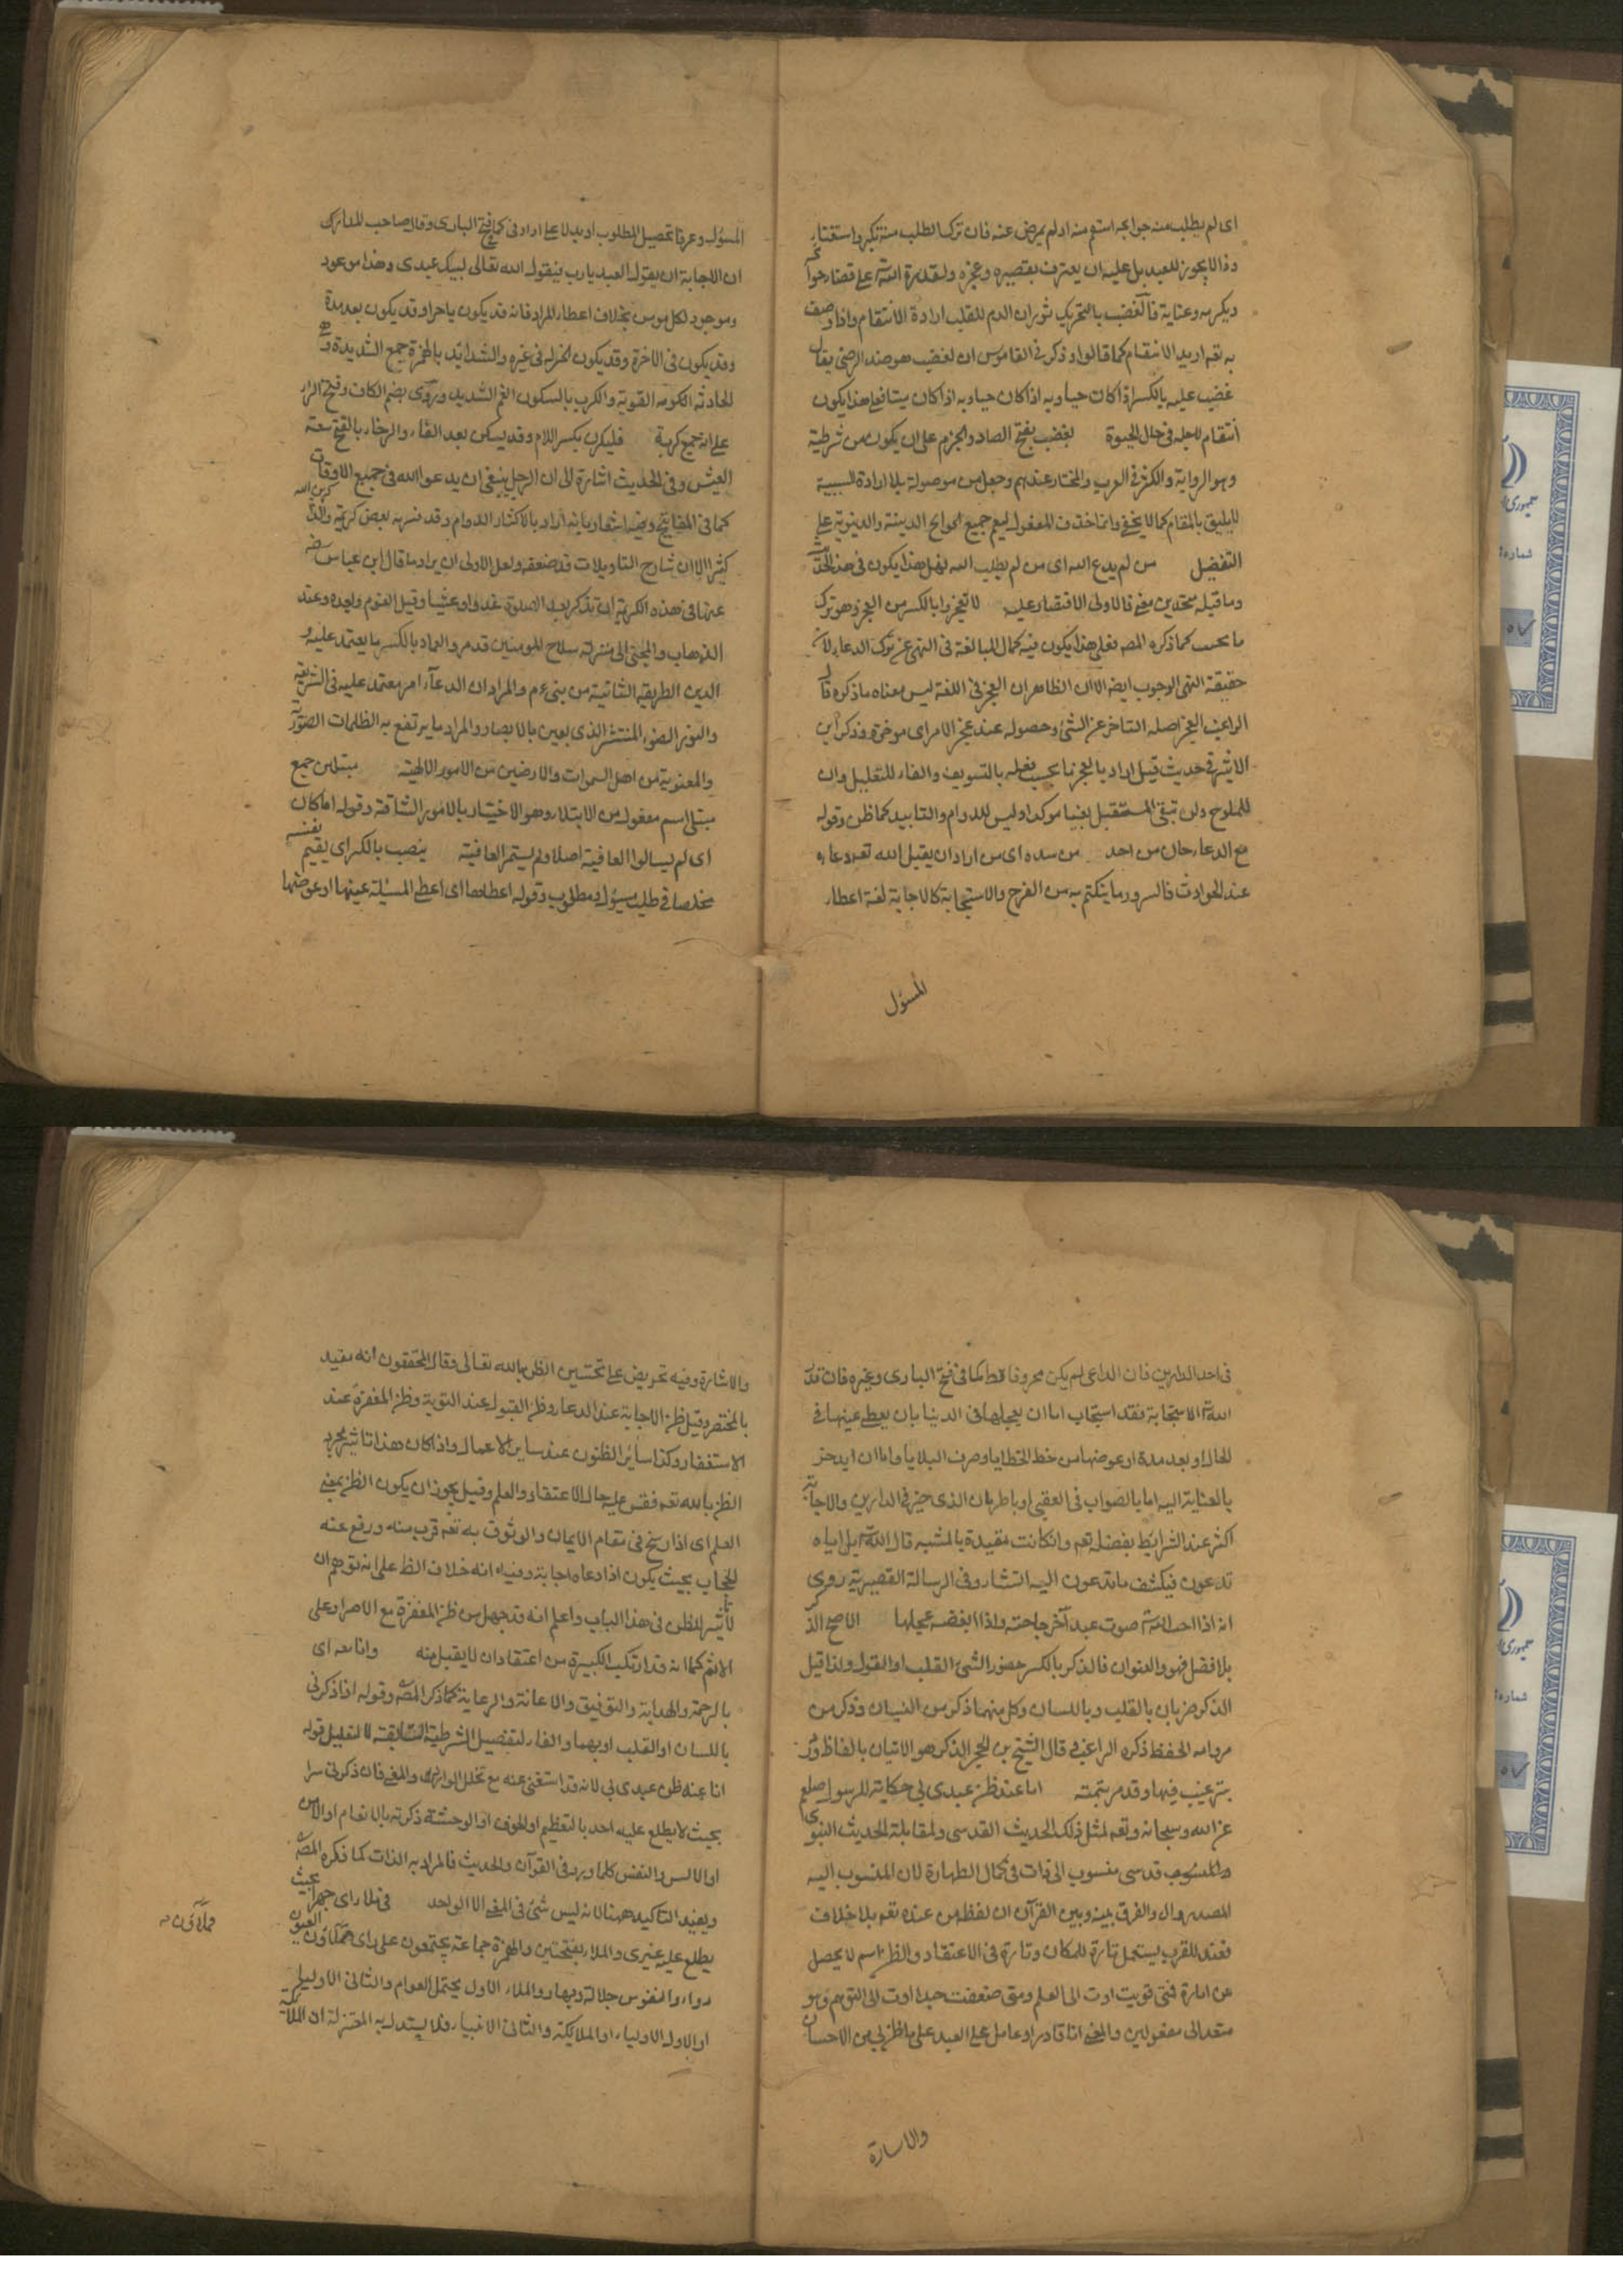 اى لم يطلب منه حوائجه استقم منه او لم يرض عنه فان ترك الطلب منه تكبر واستغناء
وذا لا يجوز للعبد بل عليه ان يعترف بتقصيره وعجزه ولقدرة الله على قضاء حوائجه
وبكرمه وعنايته فالغضب بالتحريك ثوران الدم للقلب ارادة الانتقام واذا وصف
به تعه اريد الانتقام كما قالوا وذكر فى القاموس ان الغضب هو ضد الرضى يقال
غضب عليه بالكسر اذا كان حيا وبه اذا كان ميتا فعلى هذا يكون
انتقام لاجله فى حال الحيوة يغضب بفتح الضاد والجزم على ان يكون من شرطية
وهو الرواية والاكثر فى العرب والمختار عندهم وجعل من موصولة بلا ارادة السببية
لا يليق بالمقام كما لا يخفى وانما حذف المفعول ليعم جميع الحوائج الدينية والدنيوية على
التفضيل من لم يدع الله اى من لم يطلب الله فعلى هذا يكون فى هذا الحديث
وما قبله متحدين معنى فالاولى الاقتصار عليه لا تعجزوا بالكسر من العجز وهو ترك
ما يجب كما ذكره المصه فعلى هذا يكون فيه كمال المبالغة فى النهى عن ترك الدعاء لان
حقيقة النهى الوجوب ايضه الا ان الظاهر ان العجز فى اللغة ليس معناه ما ذكره قال
الراغب العجز اصله التاخر عن الشئ وحصوله عند عجز الامر اى موخره وذكر ابن
الاثير فى حديث قيل اراد بالعجز ما يجب فعله بالتسويف والفاء للتعليل وان
ولن تبقى المستقبل نفيا موكدا وليس للدوام والتابيد كما ظن وقوله
مع الدعاء حال من احد من سره اى من اراد ان يقبل الله تعه دعاءه
عند الحوادث فالسرور ما ينكتم به من الفرح والاستجابة كالاجابة لغة اعطاء
المسؤل
المسؤل وعرفا تحصيل المطلوب او بدلا على ارادنى كما فى فتح البارى وقال صاحب المدارك
ان الاجابة ان يقول العبد يارب فيقول الله تعالى لبيك عبدى وهذا موعود
وموجود لكل مومن بخلاف اعطاء المراد فانه قد يكون ناجزا وقد يكون بعد مدة
وقد يكون فى الاخرة وقد يكون الخيرله فى غيره والشدائد بالهمزة جمع الشديدة وهى
الحادثه القوية والكرب بالسكون الغم الشديد وروى بضم الكاف وفتح الراء
على انه جمع كربة فليكثر بكسر اللام وقد يسكن بعد الفاء والرخاء بالفتح سعة
العيش وفى الحديث اشارة الى ان الرجل ينبغى ان يدعو الله فى جميع الاوقات
كما فى المفاتيح وفيه اشعار بانه اراد بالاكثار الدوام وقد فسر به بعض كريمة والذاكرين الله
كثيرا الا ان شارح التاويلات قد ضعفه ولعل الاولى ان يراد ما قال ابن عباس رضه
عنهما فى هذه الكريمة ان يذكر بعد الصلوة غدوا وعشيا وقيل النوم وبعده وعند
الذهاب والمجئ الى منزله سلاح المومنين قد مر والعماد بالكسر ما يعتمد عليه و
الدين الطريقه الثابتة من بنى ءم والمراد ان الدعآء امر معتمد عليه فى الشريعة
والنور الضوء المنتشر الذى يعين بالابصار والمراد ما يرتفع به الظلمات الصورية
والمعنوية من اهل السموات والارضين من الامور الالهية مبتلين جمع
مبتلى اسم مفعول من الابتلاء وهو الاختبار بالامور الشاقة وقوله اما كان
اى لم يسالوا العافية اصلا ولم يستمر العافية ينصب بالكسر اى يقيم نفسه
مخلصا فى طلب مسؤل ومطلوب وقوله اعطاها اى اعطى المسئلة عينها او عوضها
فى احد الدارين فان الداعى لم يكن محروما قط كما فى فتح البارى وغيره فان قدر
الله تعه الاستجابة فقد استجاب اما ان يعجلها فى الدنيا بان يعطى عينها فى
الحال او بعد مدة او عوضها من حط الخطايا وصرف البلايا واما ان يدخر
بالعناية اليه اما بالصواب فى العقبى الذى خير فى الدارين والاجابة
اكثر عند الشرايط بفضله تعه وان كانت مقيدة بالمشيه قال الله تعه بل اياه
تدعون فيكشف ما تدعون اليه ان شاء وفى الرسالة القشيرية روى
انه اذا احب الله تعه صوت عبد آخر حاجته واذا ابغضه عجلها الذكر
بلا فضل فهو والعنوان فالذكر بالكسر حضور الشئ القلب او القول ولذا قيل
الذكر ضربان بالقلب وباللسان وكل منهما ذكر من النسيان وذكر من
الحفظ ذكره الراغب قال الشيخ بن الحجر الذكر هو الاتيان بالفاظ ورد
ترغيب فيها وقد مر بتمته انا عند ظن عبدى بى حكاية للرسول صلعم
عن الله وسبحانه وتعه لمثل ذلك الحديث القدسى ولمقابلة الحديث النبوى
والمنسوب قدسى منسوب الى ذات فى كمال الطهارة لان المنسوب اليه
المصدر وال والفرق بينه وبين القرآن ان لفظه من عنده تعه بلا خلاف
فعند للقرب يستعمل تارة للمكان وتارة فى الاعتقاد والظن اسم لا يحصل
عن امارة فمتى قويت ادت الى العلم ومتى ضعفت جدا ادت الى التوهم وهو
متعد الى مفعولين والمعنى انا قادر او عامل على العبد على ما ظن بى من الاحسان
والاسارة
والاشارة وفيه تحريض على تحسين الظن بالله تعالى وقال المحققون انه مقيد
بالمحتضر وقيل ظن الاجابة عند الدعاء وظن القبول عند التوبة وظن المغفرة عند
الاستغفار وكذا سائر الظنون عند ساير الاعمال واذا كان هذا تاثير مجرد
الظن بالله تعه فقس عليه حال الاعتقاد والعلم وقيل يجوز ان يكون الظن بمعنى
العلم اى اذا رسخ فى مقام الايمان والوثوق به تعه قرب منه ورفع عنه
الحجاب بحيث يكون اذا دعاه اجابه وفيه انه خلاف الظ على انه توهم ان
لا تاثير للظن فى هذا الباب واعلم انه قد جهل من ظن المغفرة مع الاصرار على
الاثم كما انه قد ارتكب الكبيرة من اعتقد ان لا يقبل منه وانا معه اى
بالرحمة والهداية والتوفيق والاعانة والرعاية كما ذكر المصه وقوله اذا ذكرنى
باللسان او القلب او بهما والفاء لتفصيل الشرطية السابقة لا لتعليل قوله
انا عند ظن عبدى بى لانه قد استغنى عنه مع تخلل الواو والمعنى فان ذكرنى سرا
بحيث لا يطلع عليه احد بالتعظيم او الخوف او الوحشة ذكرته بالانعام او الامن
او الانس والنفس كلما ورد فى القرآن والحديث فالمراد به الذات كما ذكره المصه
ويفيد التاكيد ههنا لانه ليس شئ فى المعنى الا الواحد فى ملاء اى جهرا بحيث
يطلع عليه غيرى والملاء بفتحتين والهمزة جماعة يجتمعون على راى يملاؤن العيون
رواء والنفوس جلالة وبهاء والملاء الاول يحتمل العوام والثانى الاولياء
او الاول الاولياء او الملايكة والثانى الانبياء فلا يستدل به المعتزلة ان الملايكة
يملاؤن